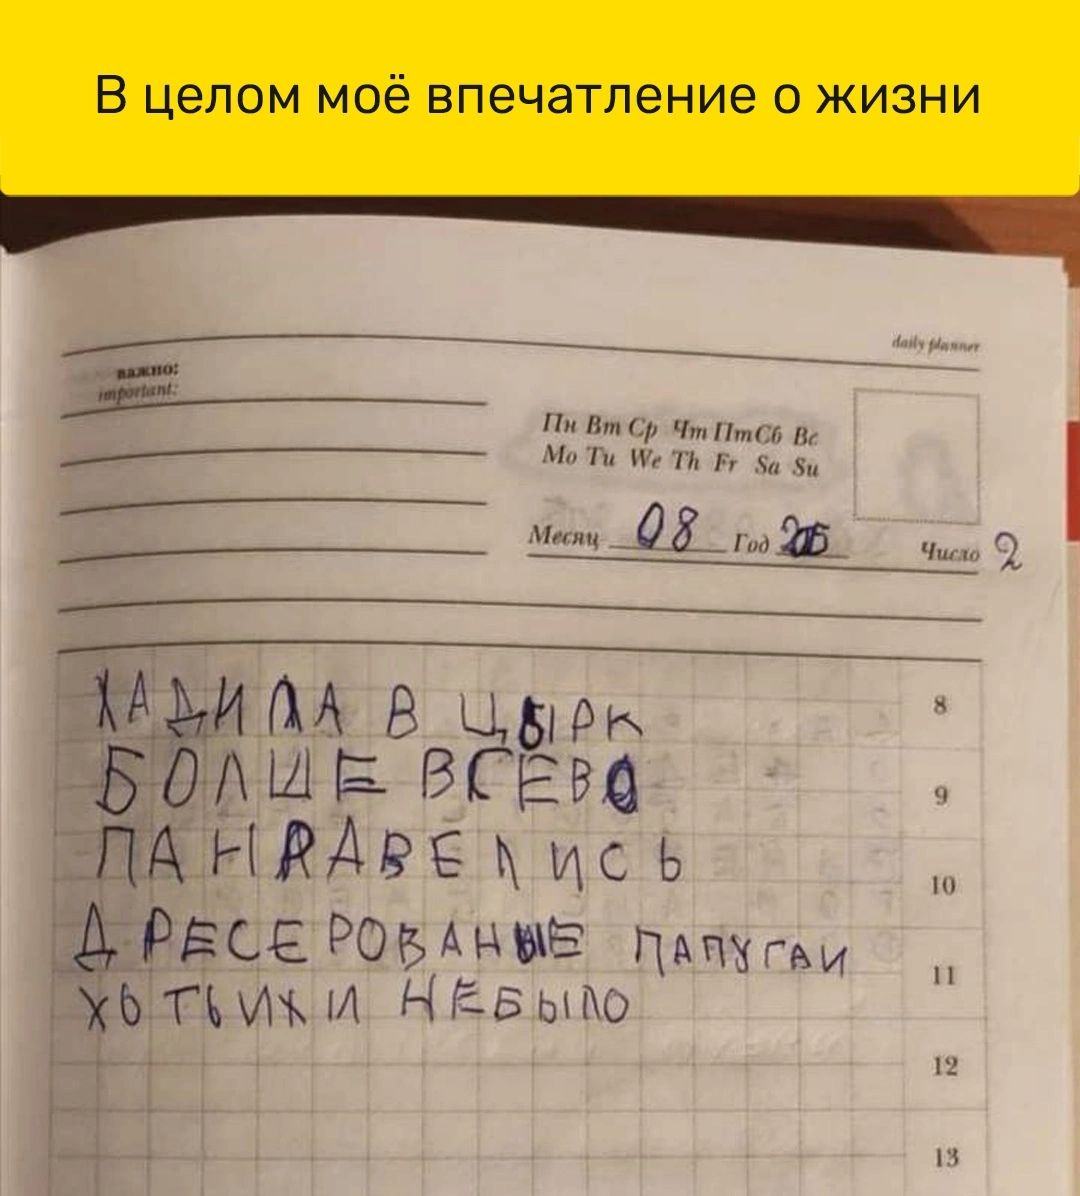 В целом моё впечатление о жизни
daily planner
важно:
important:
Пн Вт Ср Чт Пт Сб Вс
Mo Tu We Th Fr Sa Su
Месяц 08 Год Число 2
ХАДИЛА В ЦЫРК
8
БОЛШЕ ВСЕВО
9
ПАНРАВЕЛИСЬ
10
ДРЕСЕРОВАНЫЕ ПАПУГАИ
11
ХОТЬ ИХ И НЕБЫЛО
12
13